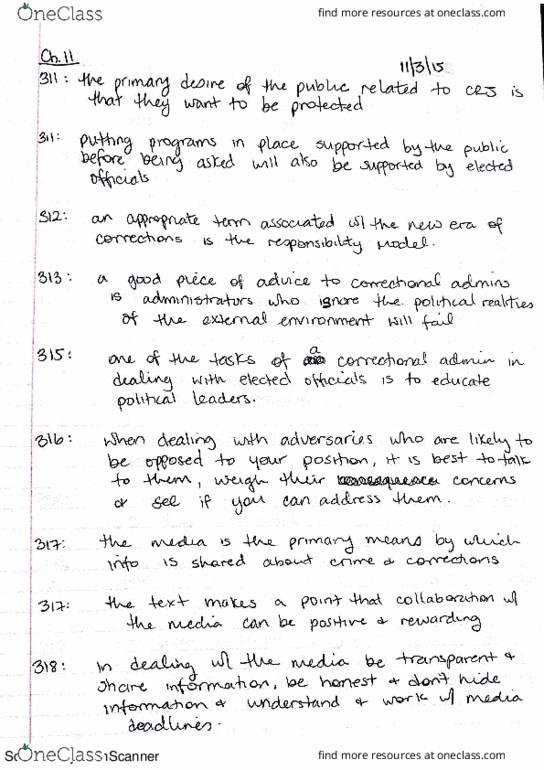 OneClass
find more resources at oneclass.com
Ch. 11
11/3/15
311: the primary desire of the public related to CRJ is
that they want to be protected
311: putting programs in place supported by the public
before being asked will also be supported by elected
officials
312: an appropriate term associated w/ the new era of
corrections is the responsibility model.
313: a good piece of advice to correctional admins
is administrators who ignore the political realities
of the external environment will fail
315: one of the tasks of a correctional admin in
dealing with elected officials is to educate
political leaders.
316: when dealing with adversaries who are likely to
be opposed to your position, it is best to talk
to them, weigh their concerns
& see if you can address them.
317: the media is the primary means by which
info is shared about crime & corrections
317: the text makes a point that collaboration w/
the media can be positive & rewarding
318: in dealing w/ the media be transparent &
share information, be honest & don't hide
information & understand & work w/ media
deadlines.
OneClass
Scanner
find more resources at oneclass.com